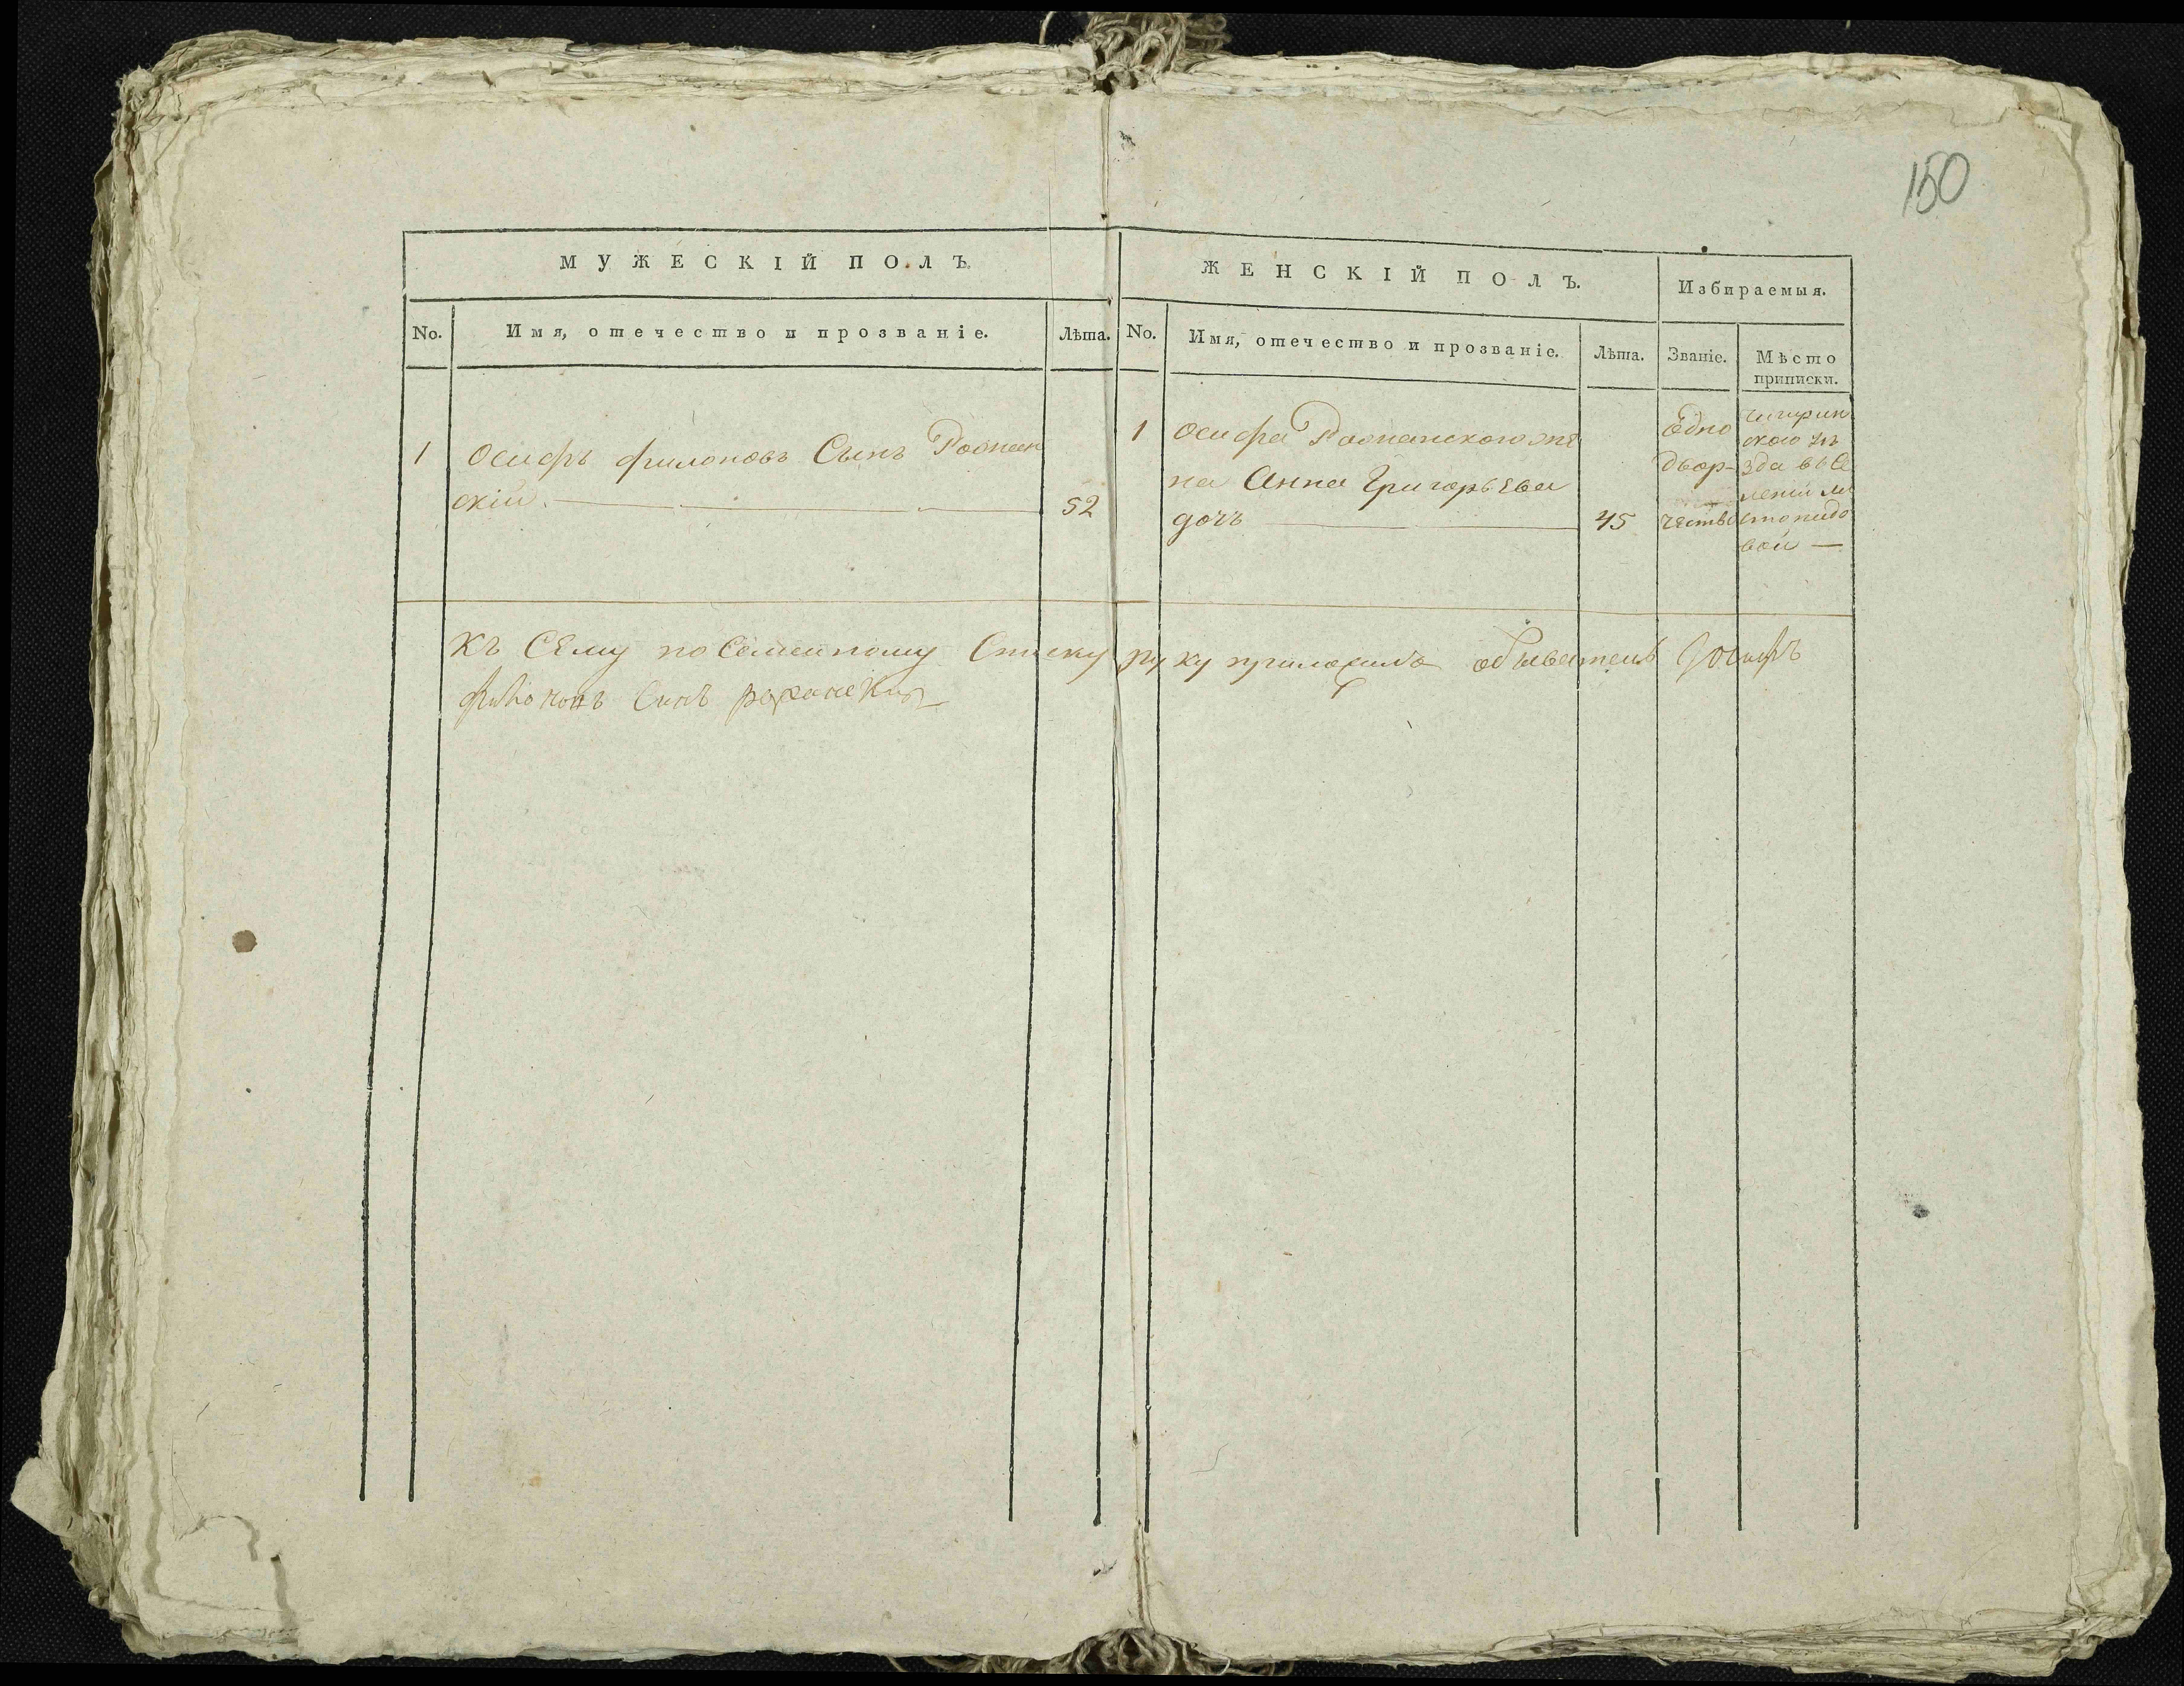 150
МУЖЕСКІЙ ПОЛЪ.
ЖЕНСКІЙ ПОЛЪ.
Избираемыя.
No.
Имя, отечество и прозваніе.
Лѣта.
No.
Имя, отечество и прозваніе.
Лѣта.
Званіе.
Мѣсто
приписки.
1
Осифъ филоновъ Сынъ Рожан
скій
52
1
Осифа Рожанского же
на Анна Григорьева
дочь
45
Одно
двор-
чество
чигирин
ского уѣ
зда въ се
вой
Къ Сему посемейному Списку руку приложилъ обыватель Йосифъ
филоновъ Синъ рожанскій